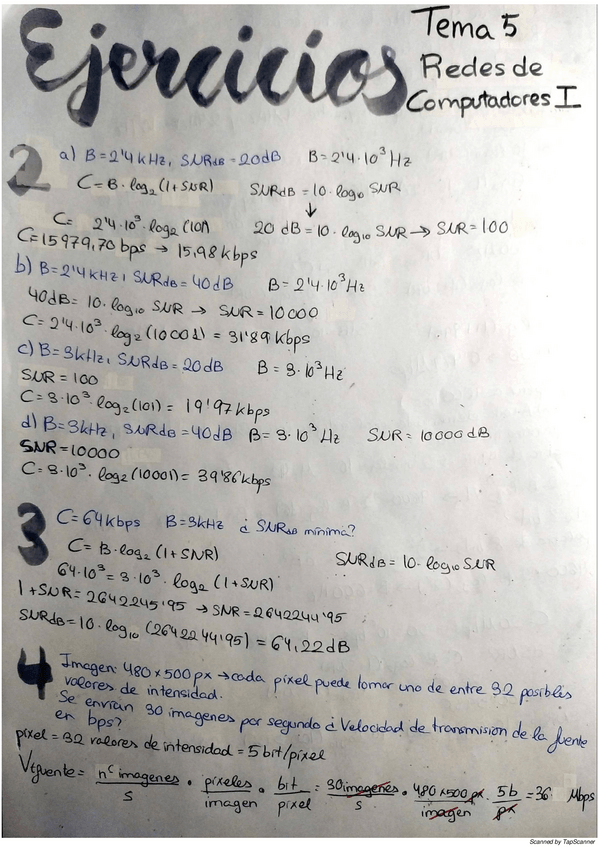 Ejercicios
Tema 5
Redes de
Computadores I
2
a) B=2'4 kHz, SNRdB=20dB B=2'4·10³ Hz
C=B·log₂(1+SNR) SNRdB=10·log₁₀ SNR
↓
C= 2'4·10³·log₂(101) 20 dB=10·log₁₀ SNR → SNR=100
C=15979,70 bps → 15,98 kbps
b) B=2'4 kHz, SNRdB=40dB B=2'4·10³ Hz
40dB=10·log₁₀ SNR → SNR=10000
C=2'4·10³·log₂(10001)=31'89 kbps
c) B=3kHz, SNRdB=20dB B=3·10³ Hz
SNR=100
C=3·10³·log₂(101)=19'97 kbps
d) B=3kHz, SNRdB=40dB B=3·10³ Hz SNR=10000 dB
SNR=10000
C=3·10³·log₂(10001)=39'86 kbps
3
C=64 kbps B=3kHz ¿SNRdB mínima?
C=B·log₂(1+SNR) SNRdB=10·log₁₀ SNR
64·10³=3·10³·log₂(1+SNR)
1+SNR=2642245'95 → SNR=2642244'95
SNRdB=10·log₁₀(2642244'95)=64,22 dB
4
Imagen: 480×500 px → cada pixel puede tomar uno de entre 32 posibles
valores de intensidad.
Se envían 30 imagenes por segundo ¿Velocidad de transmision de la fuente
en bps?
pixel=32 valores de intensidad=5 bit/pixel
Vtfuente= nº imagenes/s · pixeles/imagen · bit/pixel = 30 imagenes/s · 480×500 px/imagen · 5b/px = 36 Mbps
Scanned by TapScanner